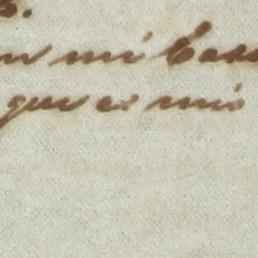 s.
en mi Casa
que es mio